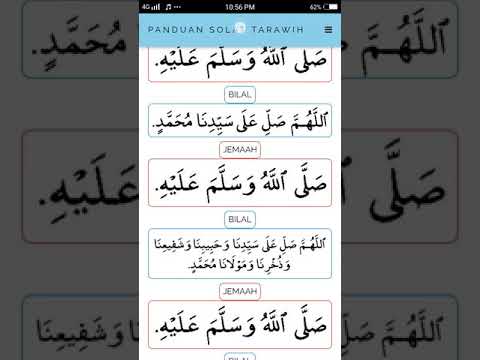 4G 10:56 PM 62%
PANDUAN SOLAT TARAWIH
صَلَّى ٱللَّهُ وَسَلَّمَ عَلَيْهِ.
BILAL
ٱللَّهُمَّ صَلِّ عَلَى سَيِّدِنَا مُحَمَّدٍ.
JEMAAH
صَلَّى ٱللَّهُ وَسَلَّمَ عَلَيْهِ.
BILAL
ٱللَّهُمَّ صَلِّ عَلَى سَيِّدِنَا وَحَبِيبِنَا وَشَفِيعِنَا
وَذُخْرِنَا وَمَوْلَانَا مُحَمَّدٍ.
JEMAAH
صَلَّى ٱللَّهُ وَسَلَّمَ عَلَيْهِ.
BILAL